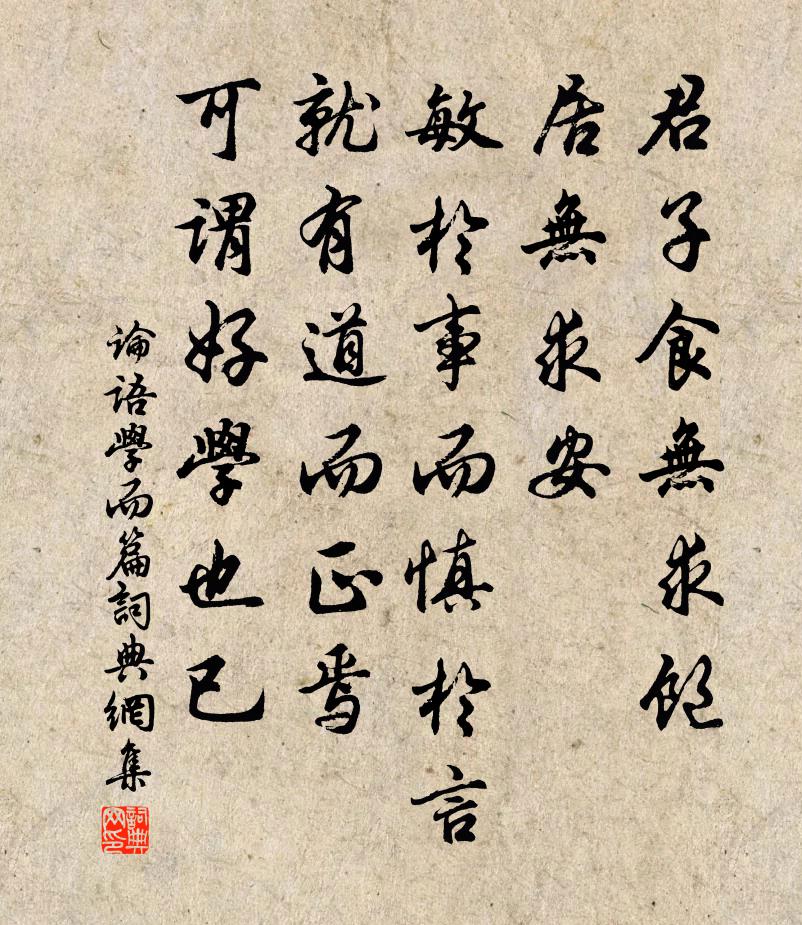 君子食無求飽
居無求安
敏於事而慎於言
就有道而正焉
可謂好學也已
論語學而篇詞典網集
詞典网印